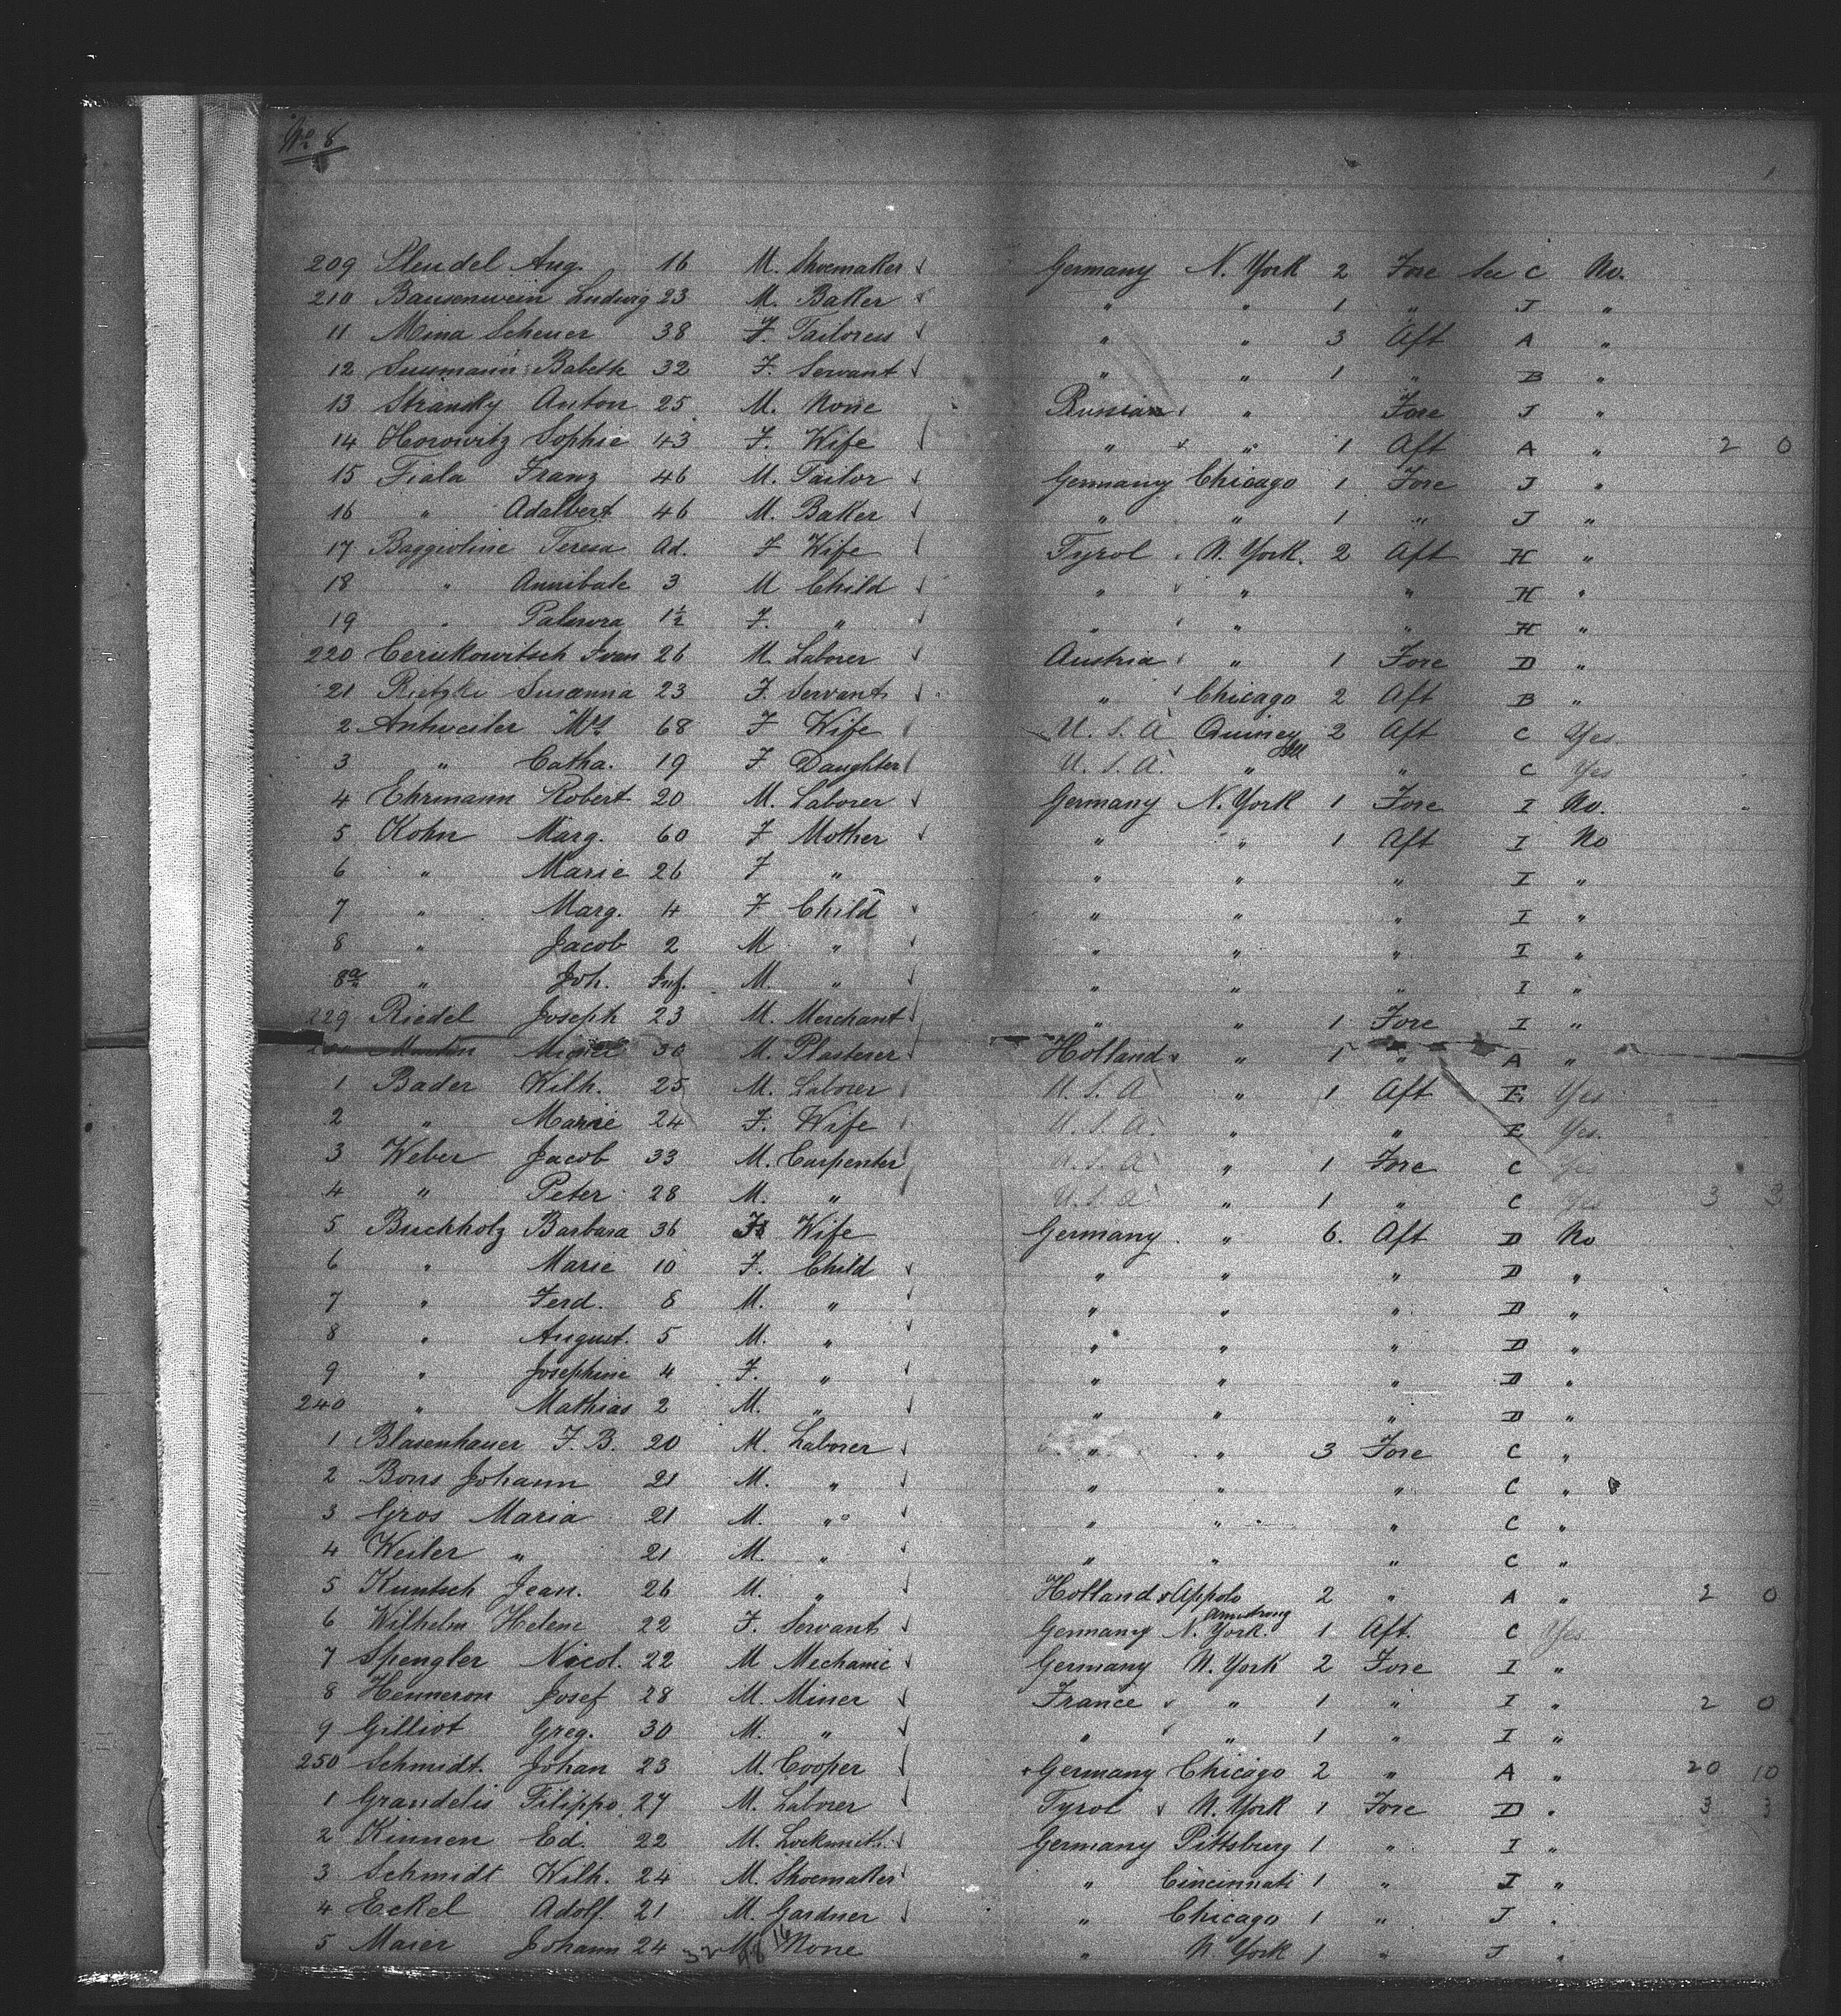 No 8
209 Slendel Aug. 16 M. Shoemaker Germany N. York 2 Fore Sec C No.
210 Bausenwein Ludwig 23 M. Baker " " 1 " J "
11 Mina Scheuer 38 F. Tailoress " " 3 Aft A "
12 Babeth 32 F. Servant " " 1 " B "
13 Stransky Anton 25 M. None Russian " Fore J "
14 Horowitz Sophie 43 F. Wife " " 1 Aft A " 2 0
15 Fiala Franz 46 M. Tailor Germany Chicago 1 Fore J "
16 " Adalbert 46 M. Baker " " 1 " J "
17 Baggioline Teresa Ad. F Wife Tyrol N. York. 2 Aft H "
18 " Annibale 3 M Child " " " H "
19 " 1½ F. " " " " H "
220 Ivan 26 M. Laborer Austria " 1 Fore D "
21 Rietzki Susanna 23 F. Servant " Chicago 2 Aft B "
2 Antweiler Mrs 68 F Wife U. S. A Quincy Ill 2 Aft C Yes
3 " Catha. 19 F Daughter U. S. A. " " C Yes
4 Ehrmann Robert 20 M. Laborer Germany N. York 1 Fore I No.
5 Kohn Marg. 60 F Mother " " 1 Aft I No
6 " Marie 26 F " " " " I "
7 " Marg. 4 F Child " " " I "
8 " Jacob 2 M " " " " I "
8a " Joh. Inf. M. " " " " I "
229 Riedel Joseph 23 M. Merchant " " 1 Fore I "
30 M. Plasterer Holland " 1 " A "
1 Bader Wilh. 25 M. Laborer U. S. A " 1 Aft E Yes
2 " Marie 24 F. Wife U. S. A. " " E Yes.
3 Weber Jacob 33 M. Carpenter U. S. A " 1 Fore C Yes
4 " Peter 28 M. " U. S. A " 1 " C Yes 3 3
5 Buckholz Barbara 36 F Wife Germany " 6. Aft D No
6 " Marie 10 F. Child " " " D "
7 " Ferd. 8 M. " " " " D "
8 " August. 5 M. " " " " D "
9 " Josephine 4 F. " " " " D "
240 " Mathias 2 M. " " " " D "
1 Blasenhauer J. B. 20 M. Laborer " " 3 Fore C "
2 Bons Johann 21 M. " " " " C "
3 Gros Maria 21 M. " " " " C "
4 Weiler " 21 M. " " " " C "
5 Kuntsch Jean. 26 M. " Holland Appolo 2 " A " 2 0
6 Wilhelm Helene 22 F. Servant Germany N. York. Armstrong 1 Aft. C Yes
7 Spengler Nicol. 22 M Mechanic Germany N. York 2 Fore I "
8 Henneron Josef 28 M. Miner France " 1 " I " 2 0
9 Gilliot Greg. 30 M. " " " 1 " I "
250 Schmidt. Johan 23 M. Cooper Germany Chicago 2 " A " 20 10
1 Grandelis Filippo 27 M. Laborer Tyrol N. York 1 Fore D " 3 3
2 Kinnen Ed. 22 M. Locksmith Germany Pittsburg 1 " I "
3 Schmidt Wilh. 24 M. Shoemaker " Cincinnati 1 " I "
4 Eckel Adolf. 21 M. Gardner " Chicago 1 " J "
5 Maier Johann 24 M None " N. York 1 " J "